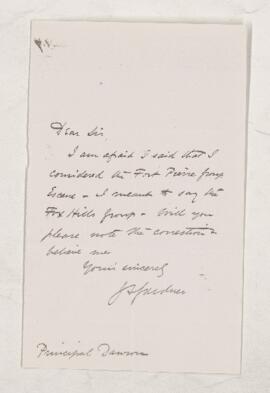 Dear Sir,
I am afraid I said that I
considered the Fort Pierre group
Eocene - I meant to say the
Fox Hills group - Will you
please note the correction &
believe me
Yours sincerely
J S Gardner
Principal Dawson